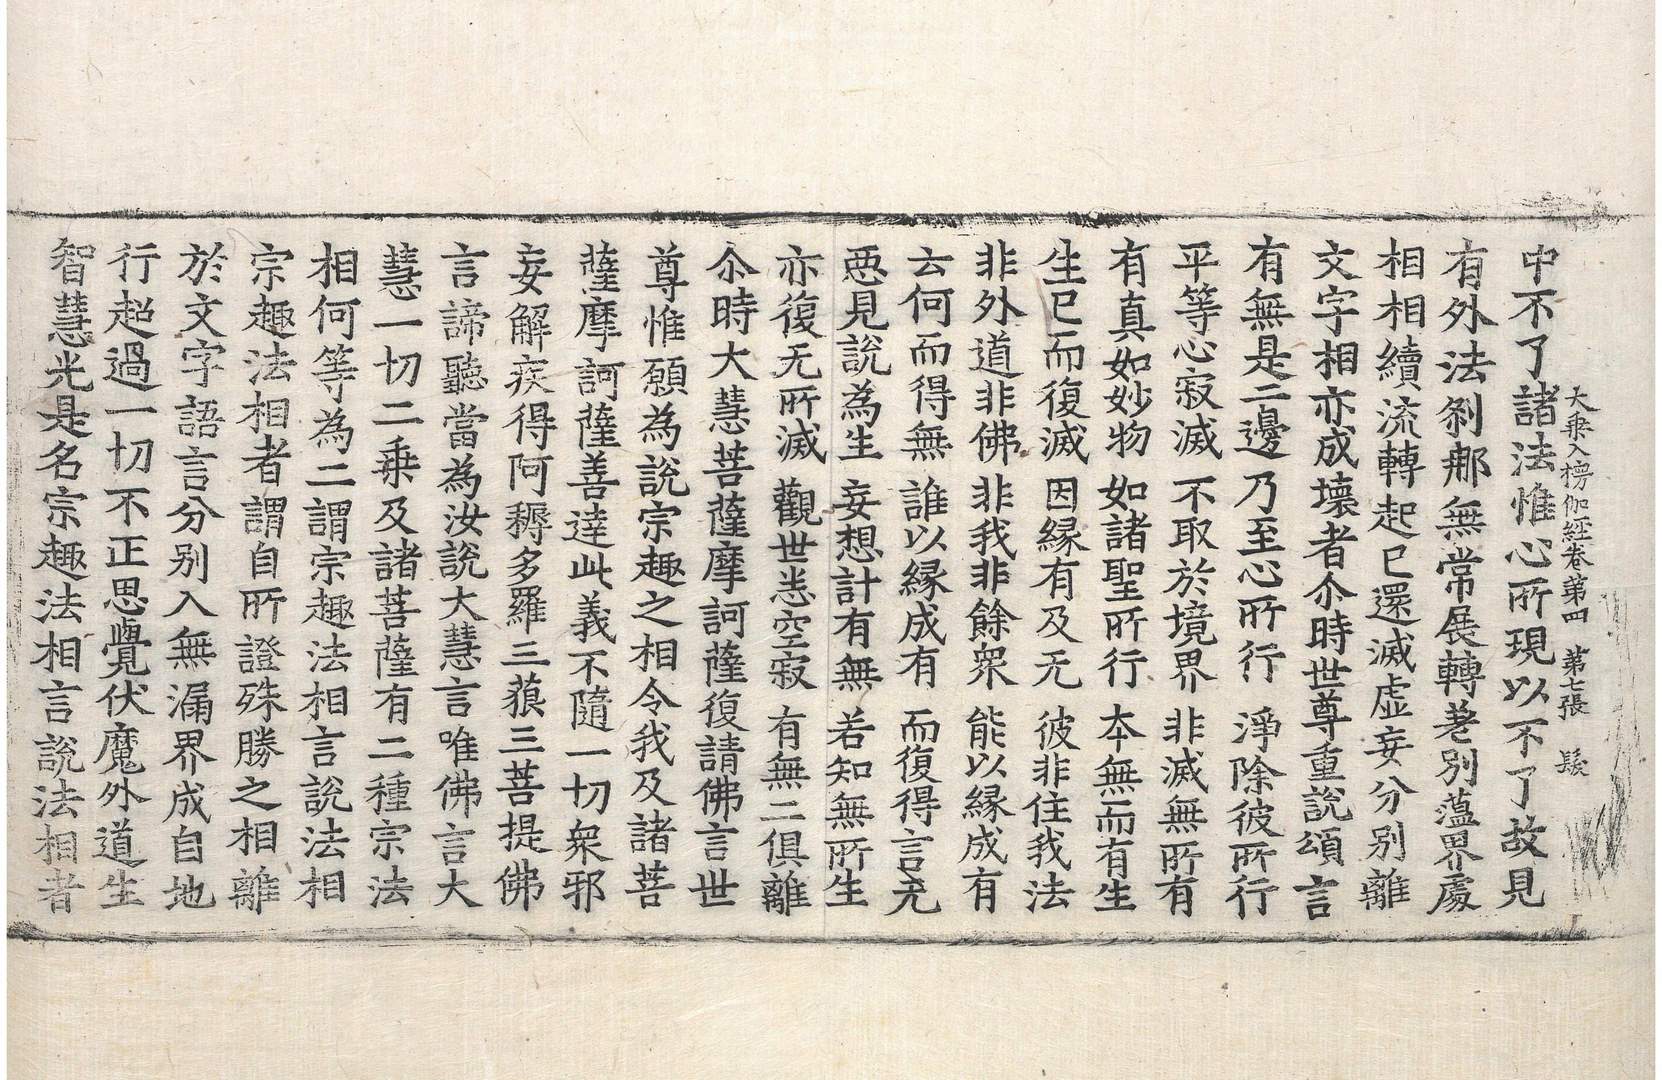 大乗入楞伽經卷苐四　苐七張　髪
中不了諸法惟心所現以不了故見
有外法剎那無常展轉差別蘊界處
相相續流轉起已還滅虛妄分別離
文字相亦成壞者尒時世尊重說頌言
有無是二邊 乃至心所行 淨除彼所行
平等心寂滅 不取於境界 非滅無所有
有真如妙物 如諸聖所行 本無而有生
生已而復滅 因緣有及无 彼非住我法
非外道非佛 非我非餘衆 能以緣成有
云何而得無 誰以緣成有 而復得言无
惡見說為生 妄想計有無 若知無所生
亦復无所滅 觀世悉空寂 有無二俱離
尒時大慧菩薩摩訶薩復請佛言世
尊惟願為說宗趣之相令我及諸菩
薩摩訶薩善達此義不隨一切衆邪
妄解疾得阿耨多羅三藐三菩提佛
言諦聽當為汝說大慧言唯佛言大
慧一切二乗及諸菩薩有二種宗法
相何等為二謂宗趣法相言說法相
宗趣法相者謂自所證殊勝之相離
於文字語言分別入無漏界成自地
行超過一切不正思覺伏魔外道生
智慧光是名宗趣法相言說法相者